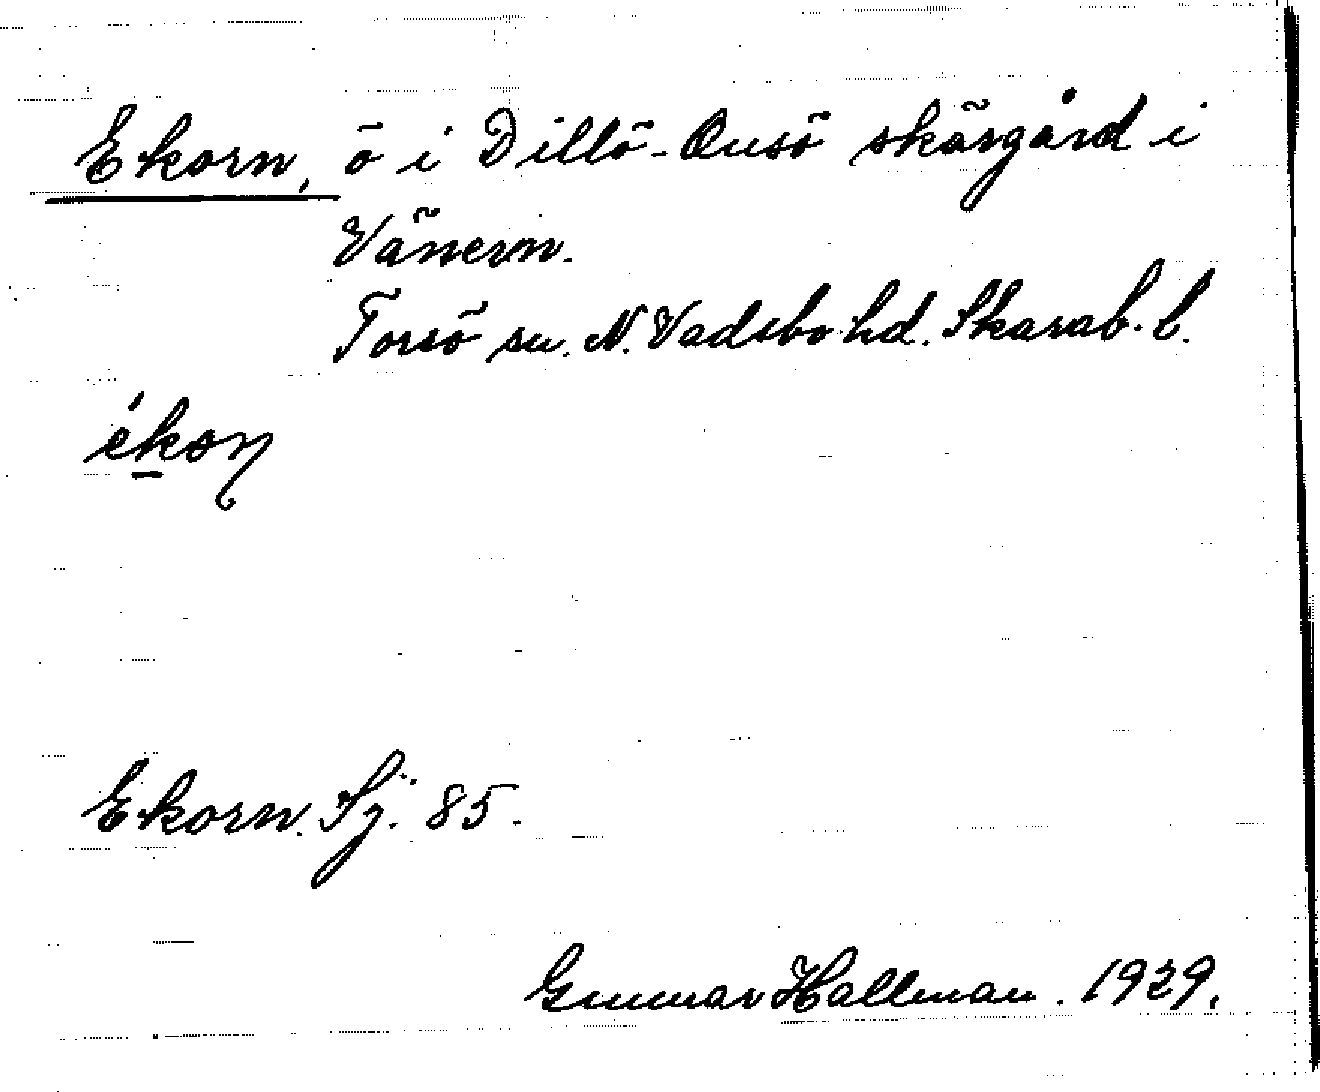 Ekorn, ö i Dillö-Onsö skärgård i
Vänern.
Torsö sn. N. Vadsbo hd. Skarab. l.
ékoꞃ
Ekorn. Sj. 85.
Gunnar Hallman. 1929.